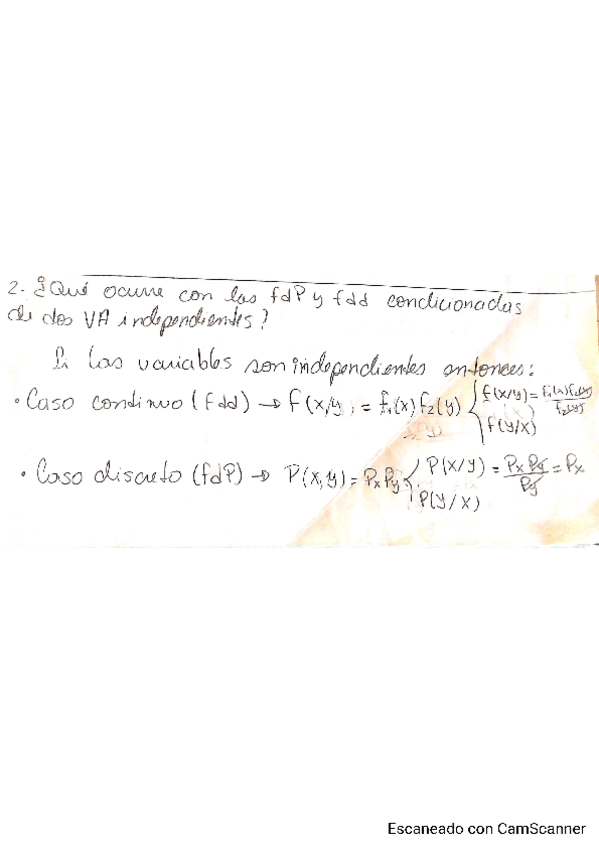 2- ¿Qué ocurre con las fdP y fdd condicionadas
de dos VA independientes?
Si las variables son independientes entonces:
• Caso continuo (fdd) → f(x,y) = f₁(x) f₂(y) { f(x/y) = f₁(x)f₂(y)/f₂(y)
f(y/x)
• Caso discreto (fdP) → P(x,y) = Px Py { P(x/y) = Px Py/Py = Px
P(y/x)
Escaneado con CamScanner